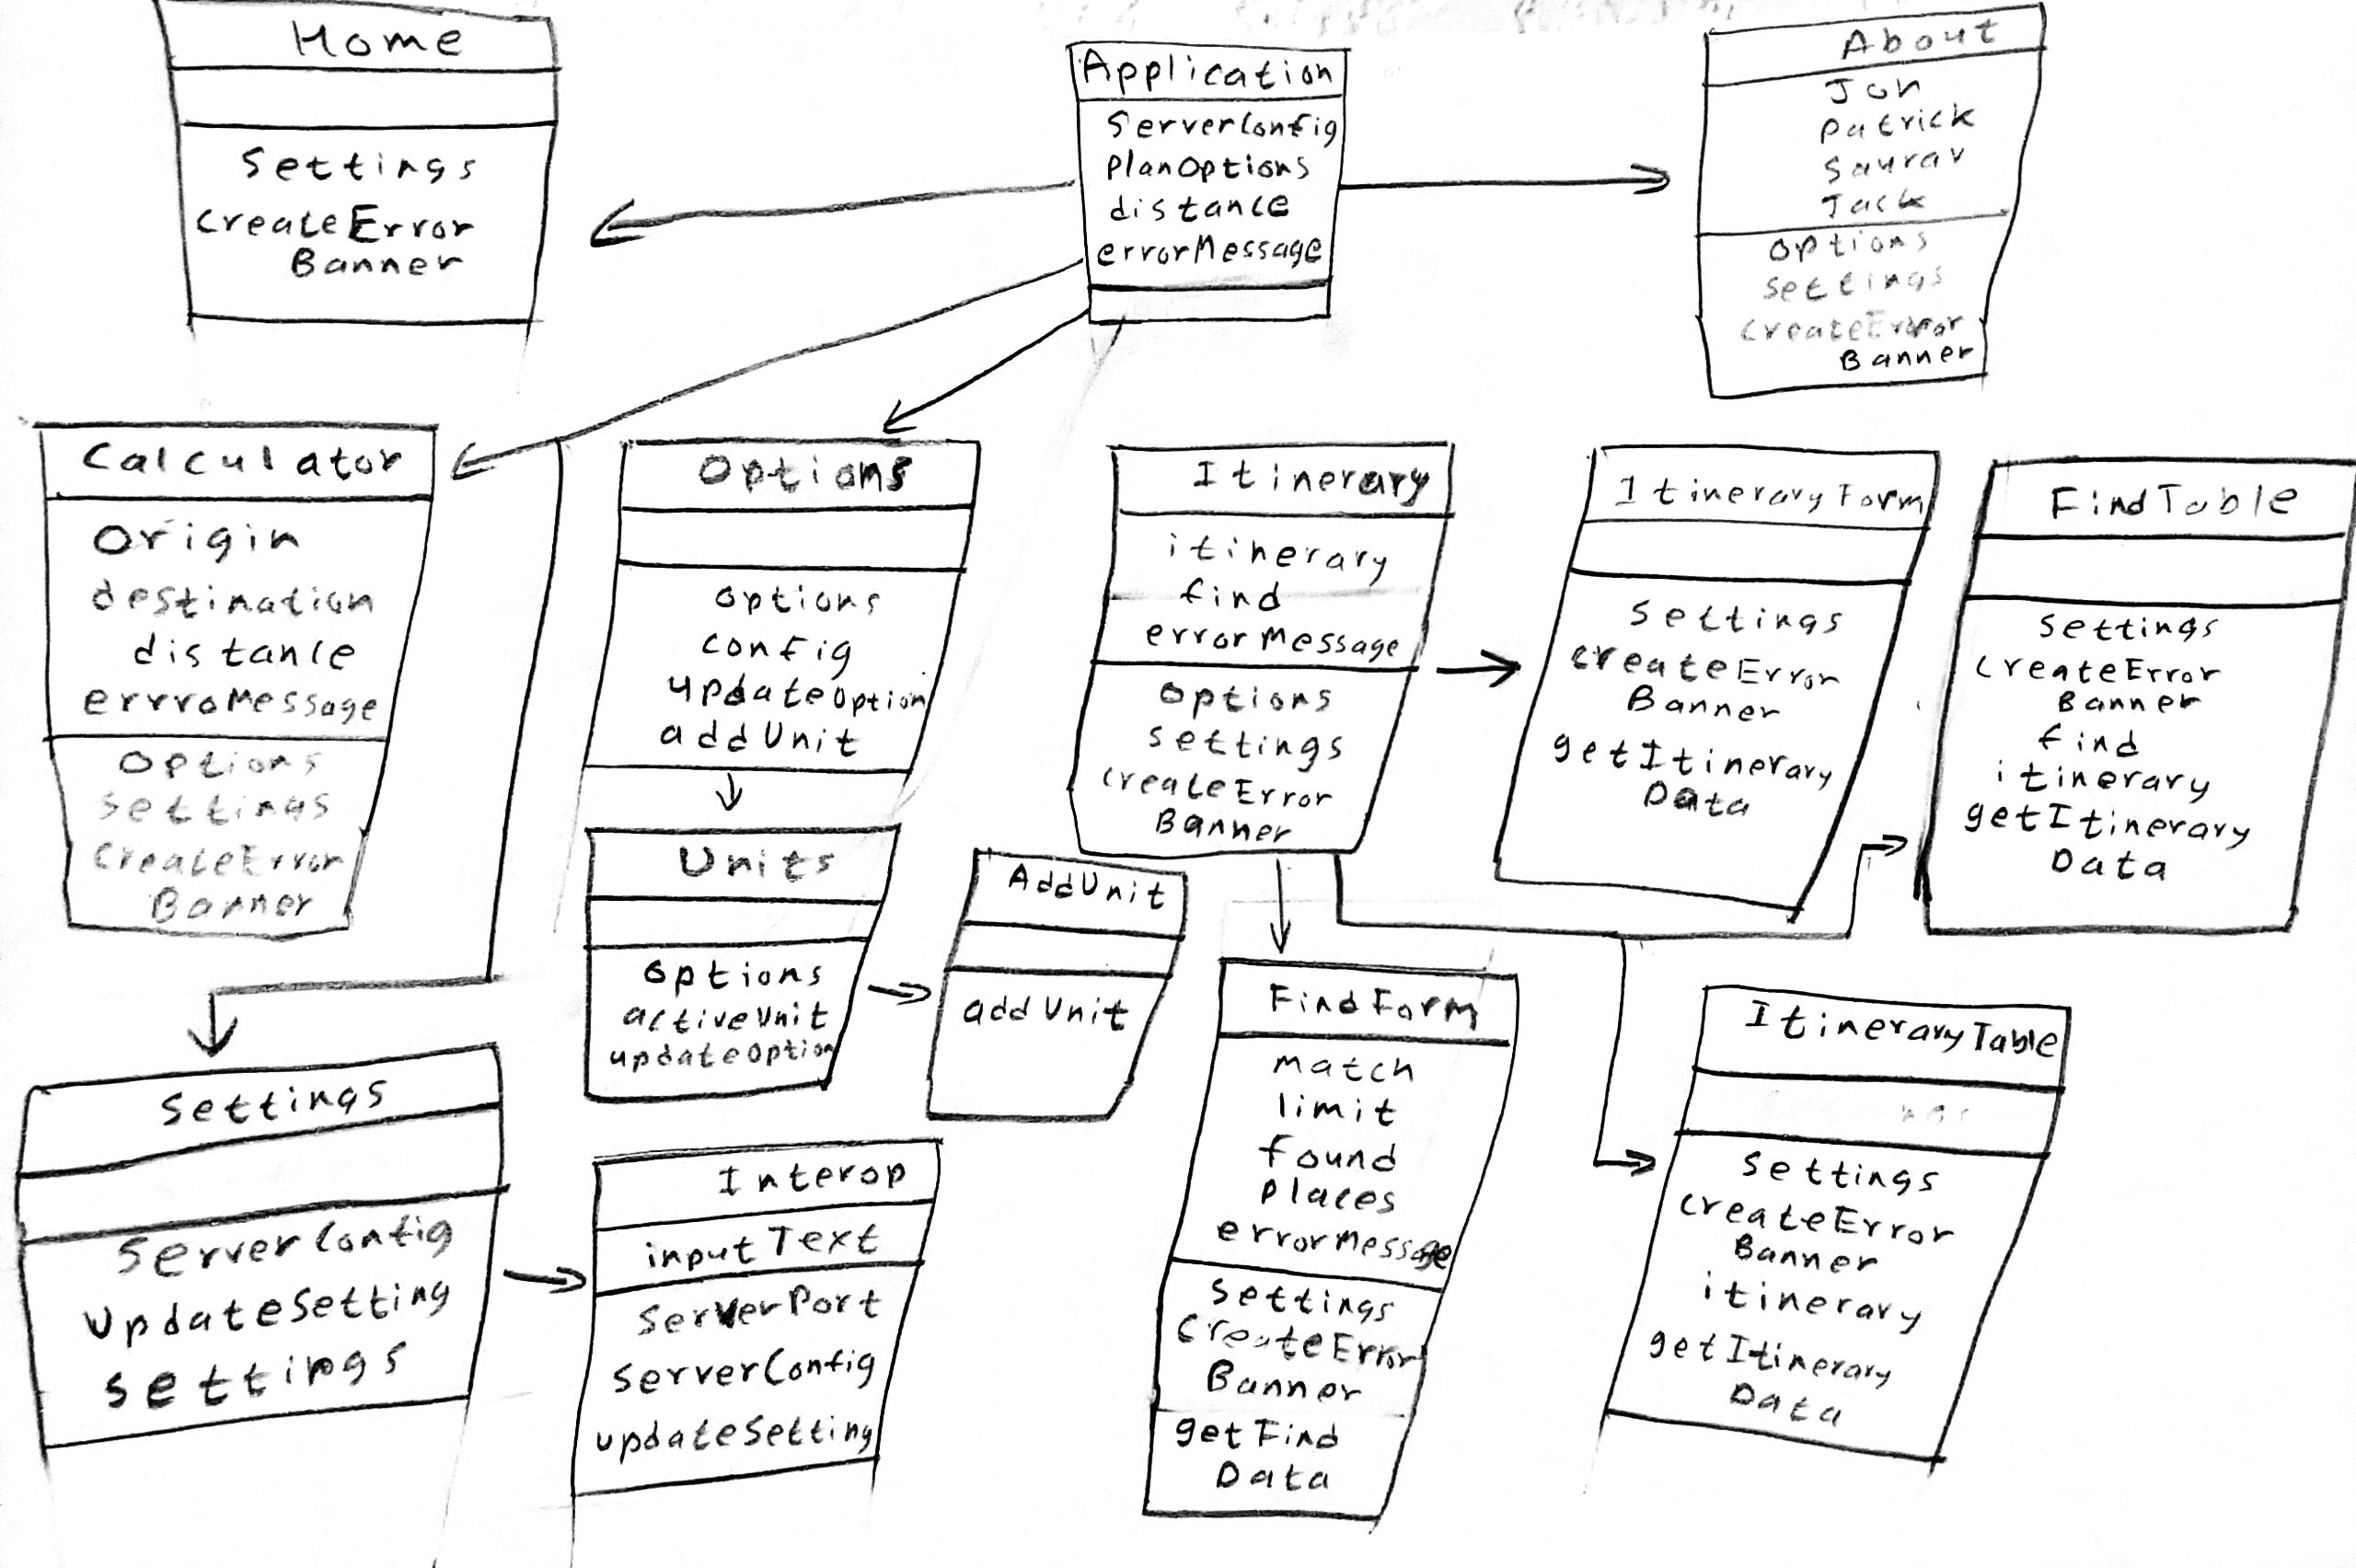 Home
Settings
createError
Banner
Application
ServerConfig
PlanOptions
distance
errorMessage
About
Jon
Patrick
Saurav
Jack
Options
Settings
createError
Banner
Calculator
Origin
destination
distance
errroMessage
Options
Settings
CreateError
Banner
Options
options
config
updateOption
addUnit
Itinerary
itinerary
find
errorMessage
Options
Settings
createError
Banner
ItineraryForm
Settings
createError
Banner
getItinerary
Data
FindTable
Settings
createError
Banner
find
itinerary
getItinerary
Data
Units
Options
activeUnit
updateOption
AddUnit
addUnit
FindForm
match
limit
found
Places
errorMessage
Settings
CreateError
Banner
getFind
Data
ItineraryTable
Settings
createError
Banner
itinerary
getItinerary
Data
Settings
ServerConfig
UpdateSetting
Settings
Interop
inputText
ServerPort
ServerConfig
updateSetting